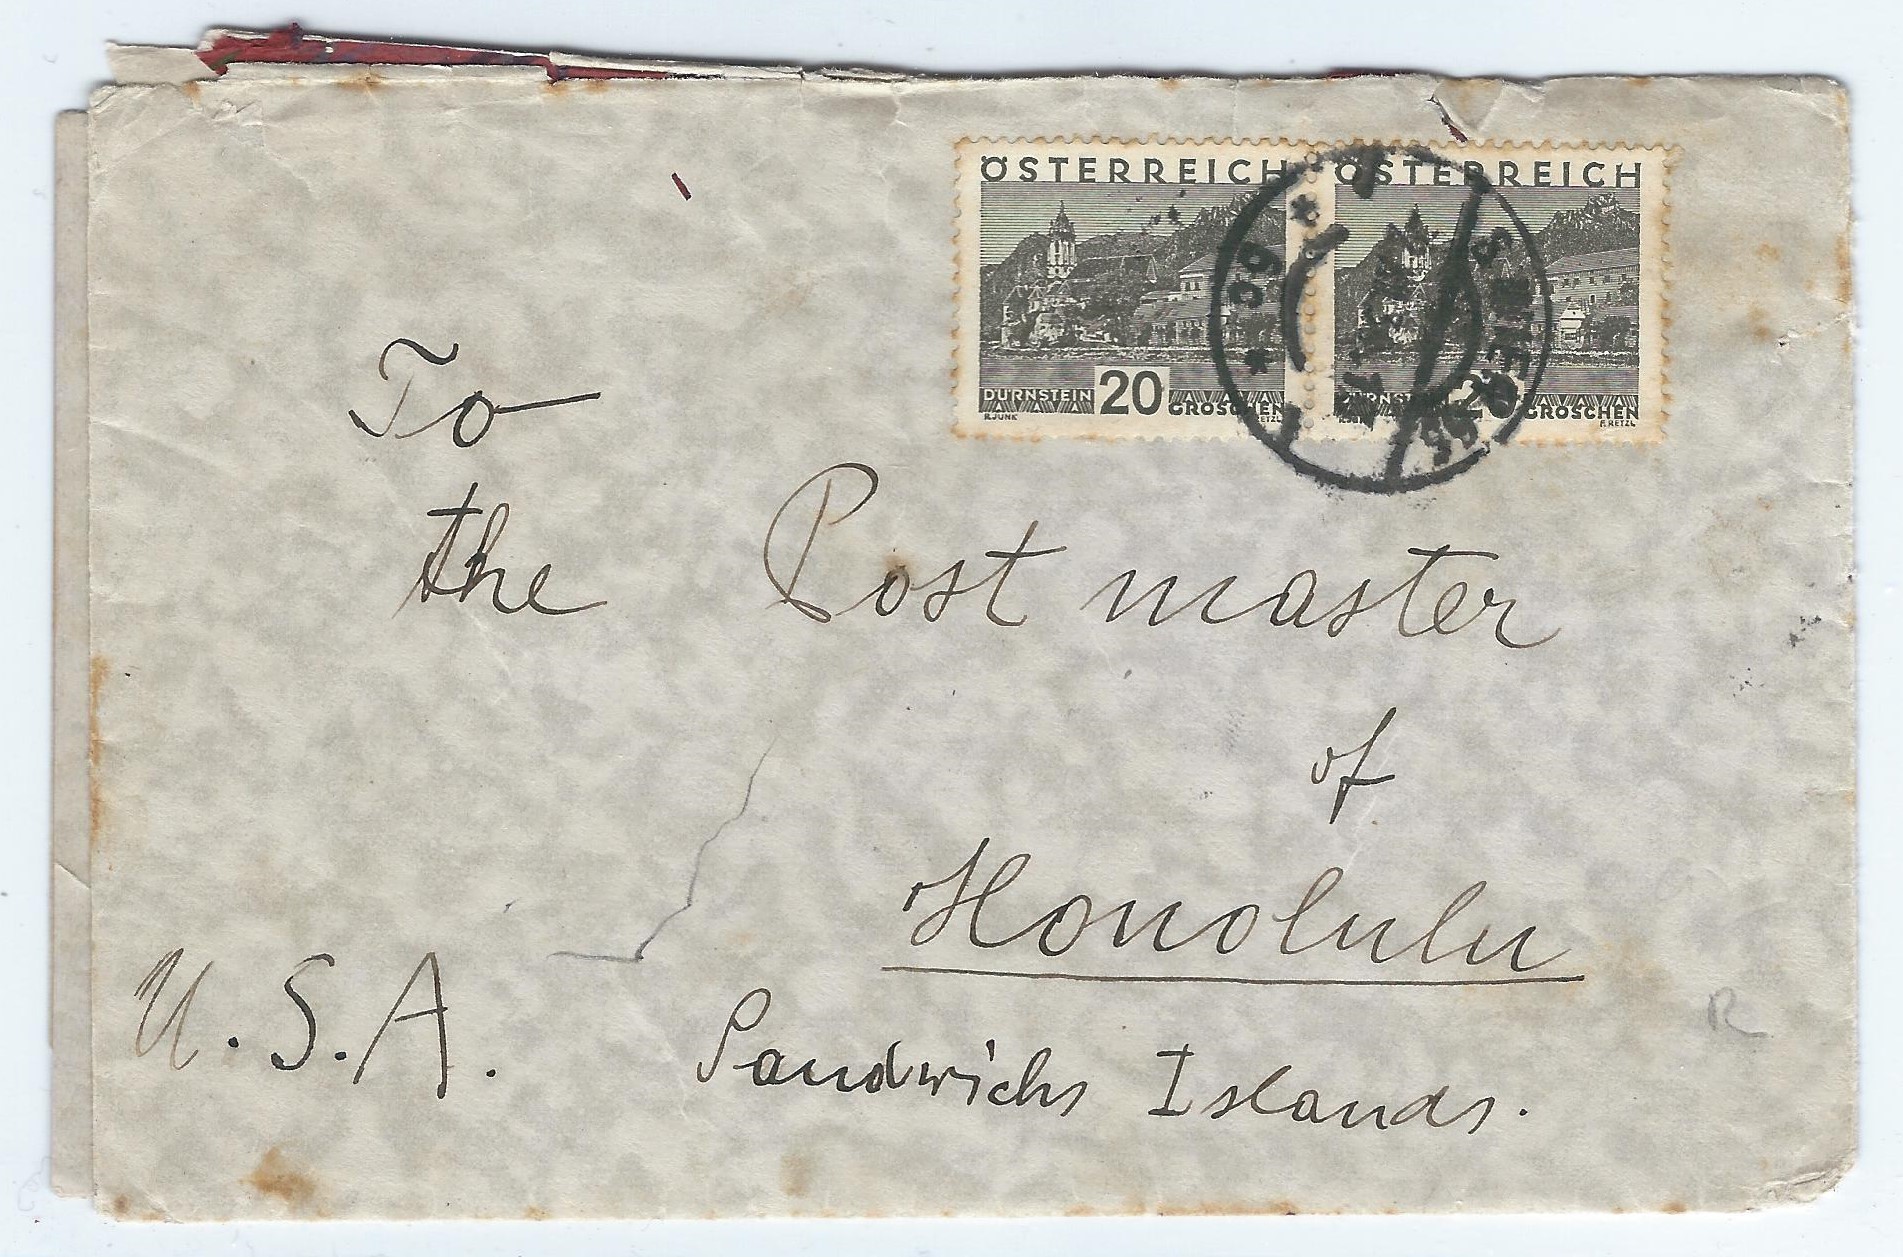 ÖSTERREICH ÖSTERREICH
DÜRNSTEIN 20 GROSCHEN DÜRNSTEIN 20 GROSCHEN
R.JUNK F.RETZL R.JUNK F.RETZL
* WIEN
To
the Post master
of
Honolulu
U.S.A. Sandwichs Islands.
R